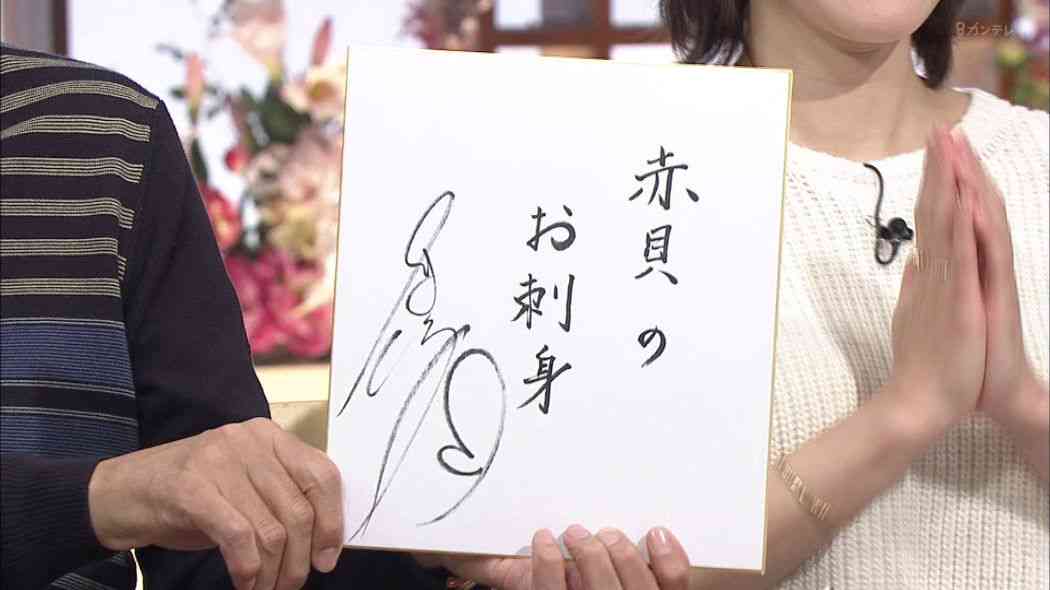 赤貝の
お刺身
8カンテレ